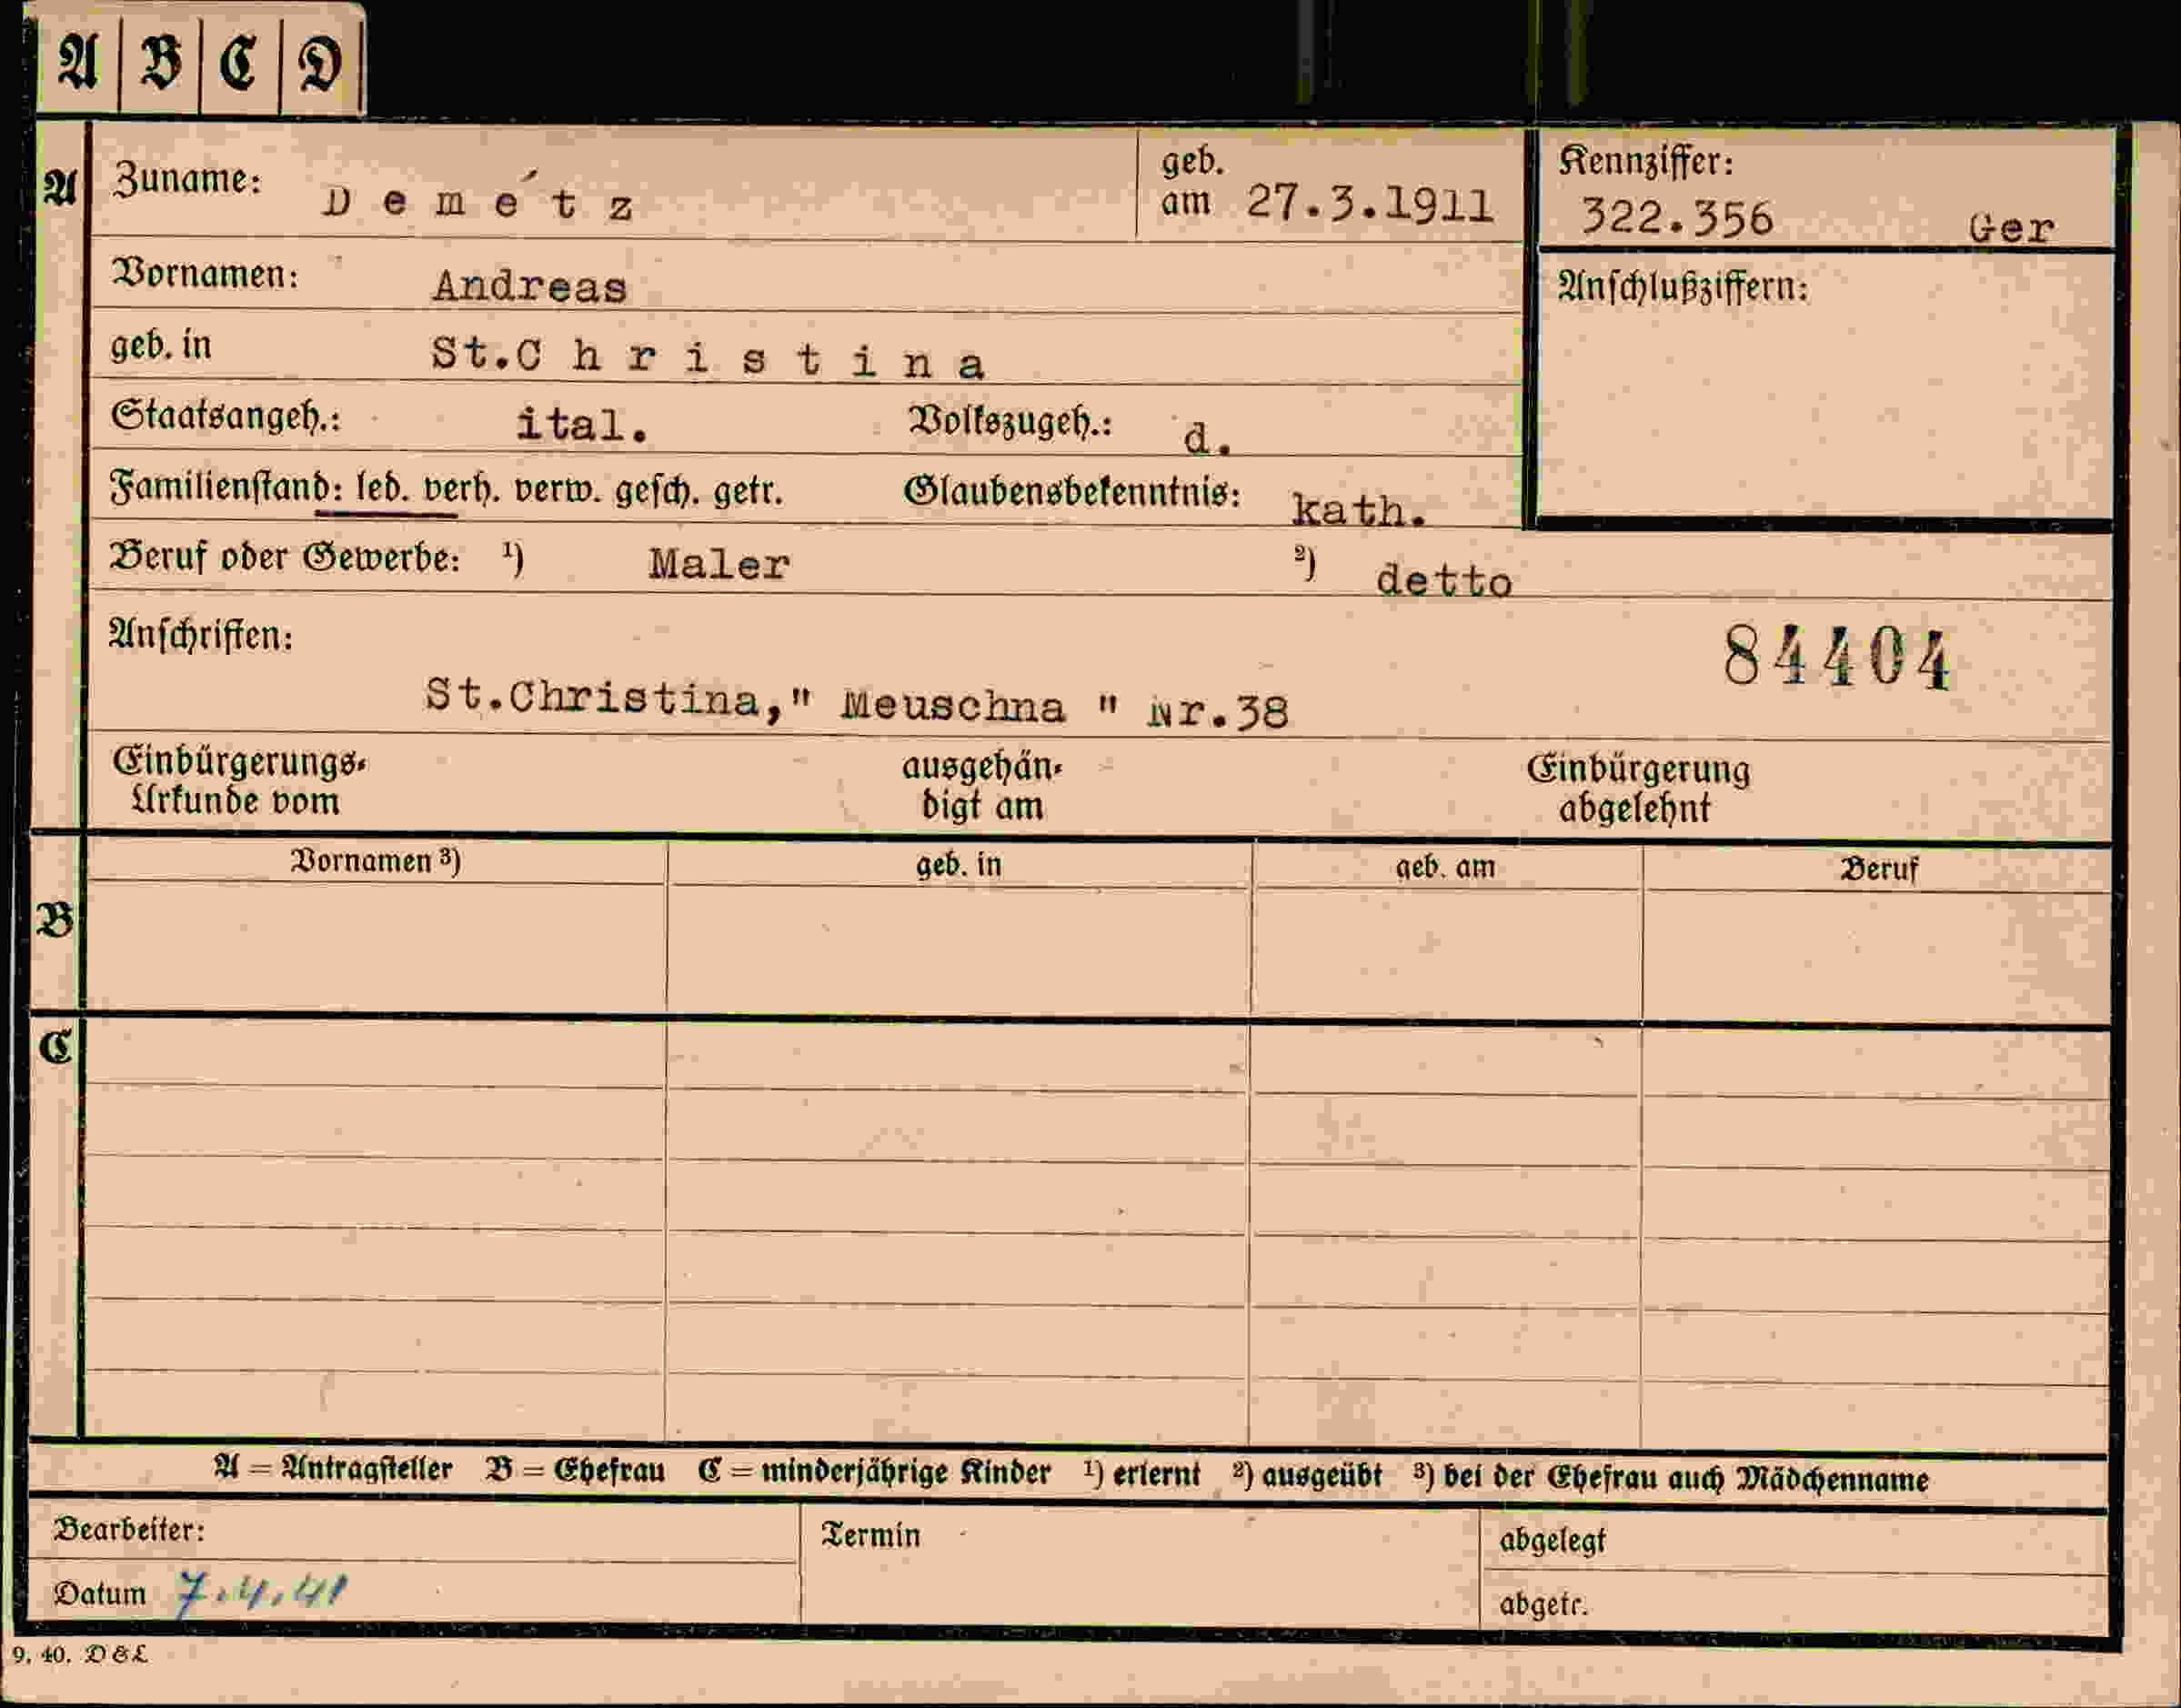 A B C D
A Zuname: D e m é t z geb. am 27.3.1911 Kennziffer: 322.356 Ger
Vornamen: Andreas Anschlußziffern:
geb. in St.C h r i s t i n a
Staatsangeh.: ital. Volkszugeh.: d.
Familienstand: led. verh. verw. gesch. getr. Glaubensbekenntnis: kath.
Beruf oder Gewerbe: 1) Maler 2) detto
Anschriften: 84404
St.Christina," Meuschna " Nr.38
Einbürgerungs- ausgehän- Einbürgerung
Urkunde vom digt am abgelehnt
Vornamen 3) geb. in geb. am Beruf
B
C
A = Antragsteller B = Ehefrau C = minderjährige Kinder 1) erlernt 2) ausgeübt 3) bei der Ehefrau auch Mädchenname
Bearbeiter: Termin abgelegt
Datum 7.4.41 abgetr.
9. 40. D & L